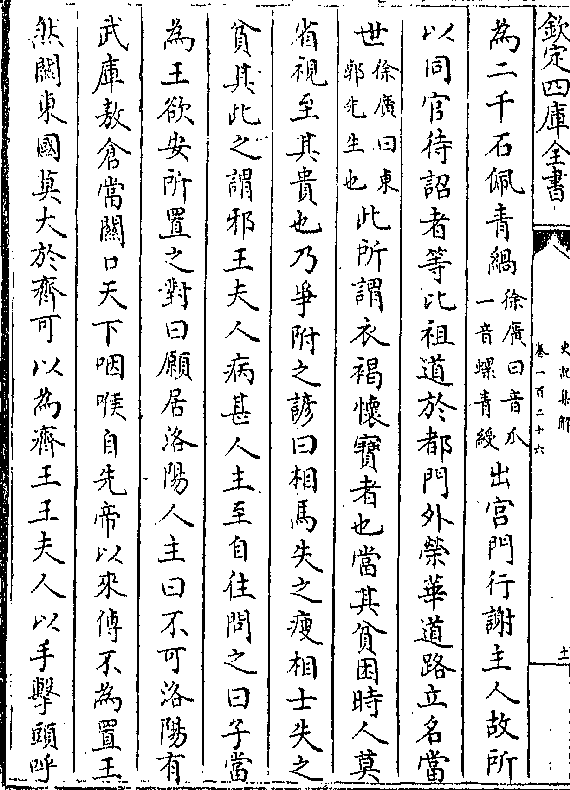 欽定四庫全書
史記集解
卷一百二十六
十二
為二千石佩青緺徐廣曰音瓜一音螺青綬出宮門行謝主人故所
以同官待詔者等比祖道於都門外榮華道路立名當
世徐廣曰東郭先生也此所謂衣褐懷寶者也當其貧困時人莫
省視至其貴也乃爭附之諺曰相馬失之瘦相士失之
貧其此之謂邪王夫人病甚人主至自往問之曰子當
為王欲安所置之對曰願居洛陽人主曰不可洛陽有
武庫敖倉當關口天下咽喉自先帝以來傳不為置王
然關東國莫大於齊可以為齊王王夫人以手擊頭呼